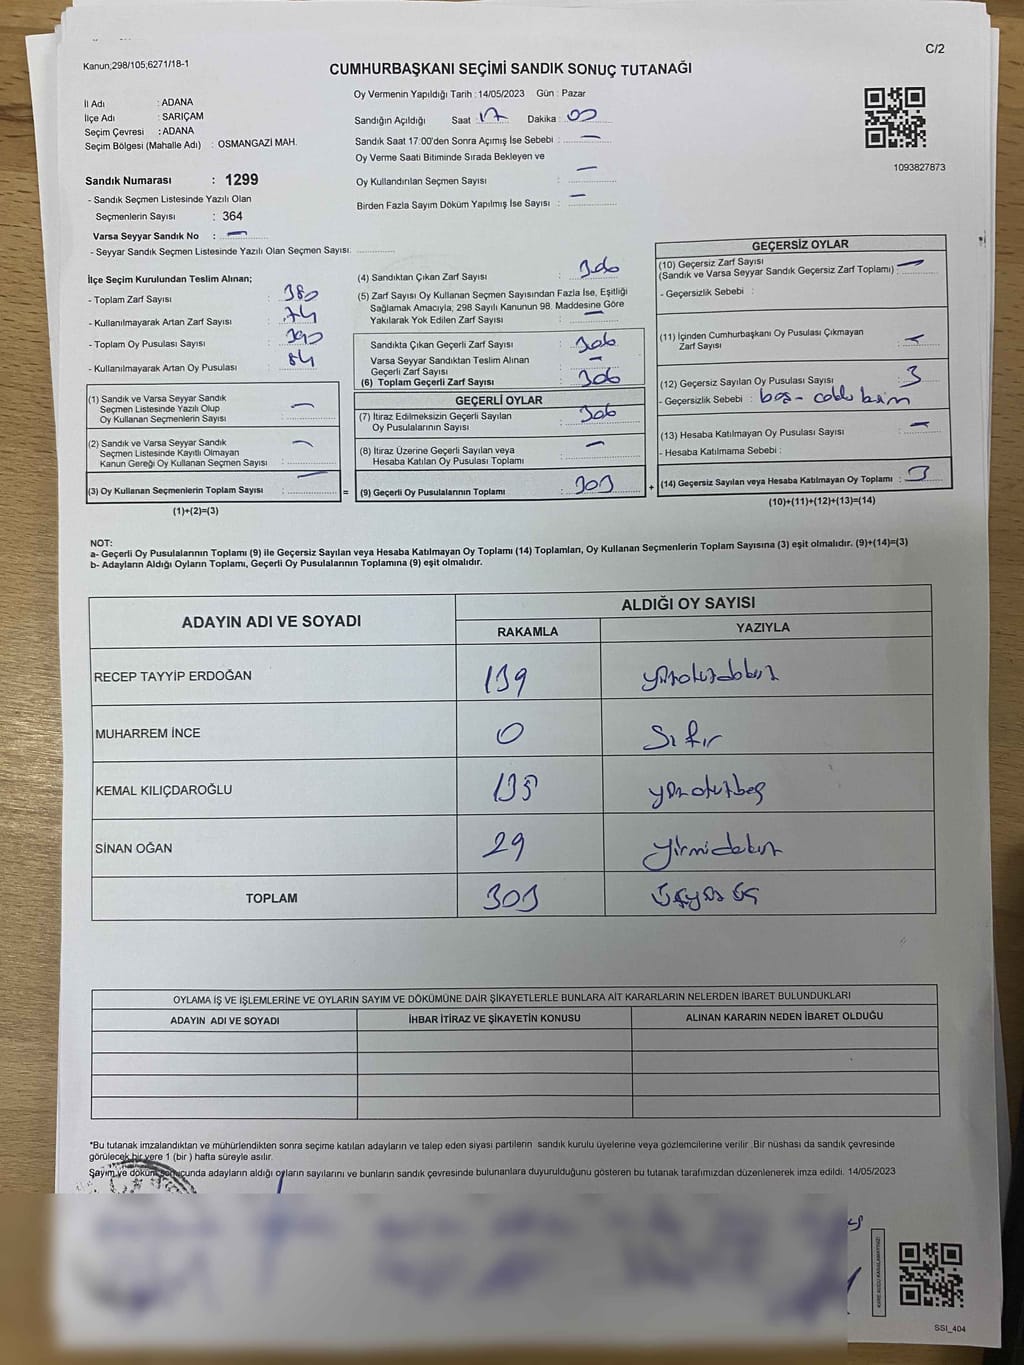 C/2
Kanun;298/105;6271/18-1
CUMHURBAŞKANI SEÇİMİ SANDIK SONUÇ TUTANAĞI
İl Adı : ADANA
İlçe Adı : SARIÇAM
Seçim Çevresi : ADANA
Seçim Bölgesi (Mahalle Adı) : OSMANGAZİ MAH.
Oy Vermenin Yapıldığı Tarih : 14/05/2023 Gün : Pazar
Sandığın Açıldığı Saat : 17 Dakika : 00
Sandık Saat 17:00'den Sonra Açımış İse Sebebi : —
Oy Verme Saati Bitiminde Sırada Bekleyen ve
Oy Kullandırılan Seçmen Sayısı : —
Birden Fazla Sayım Döküm Yapılmış İse Sayısı : —
1093827873
Sandık Numarası : 1299
- Sandık Seçmen Listesinde Yazılı Olan
Seçmenlerin Sayısı : 364
Varsa Seyyar Sandık No : —
- Seyyar Sandık Seçmen Listesinde Yazılı Olan Seçmen Sayısı:
İlçe Seçim Kurulundan Teslim Alınan;
- Toplam Zarf Sayısı : 380
- Kullanılmayarak Artan Zarf Sayısı : 74
- Toplam Oy Pusulası Sayısı : 390
- Kullanılmayarak Artan Oy Pusulası : 84
(1) Sandık ve Varsa Seyyar Sandık
Seçmen Listesinde Yazılı Olup
Oy Kullanan Seçmenlerin Sayısı : —
(2) Sandık ve Varsa Seyyar Sandık
Seçmen Listesinde Kayıtlı Olmayan
Kanun Gereği Oy Kullanan Seçmen Sayısı : —
(3) Oy Kullanan Seçmenlerin Toplam Sayısı : — =
(1)+(2)=(3)
(4) Sandıktan Çıkan Zarf Sayısı : 306
(5) Zarf Sayısı Oy Kullanan Seçmen Sayısından Fazla İse, Eşitliği
Sağlamak Amacıyla; 298 Sayılı Kanunun 98. Maddesine Göre
Yakılarak Yok Edilen Zarf Sayısı : —
Sandıkta Çıkan Geçerli Zarf Sayısı : 306
Varsa Seyyar Sandıktan Teslim Alınan
Geçerli Zarf Sayısı : —
(6) Toplam Geçerli Zarf Sayısı : 306
GEÇERLİ OYLAR
(7) İtiraz Edilmeksizin Geçerli Sayılan
Oy Pusulalarının Sayısı : 306
(8) İtiraz Üzerine Geçerli Sayılan veya
Hesaba Katılan Oy Pusulası Toplamı : —
(9) Geçerli Oy Pusulalarının Toplamı : 303 +
GEÇERSİZ OYLAR
(10) Geçersiz Zarf Sayısı : —
(Sandık ve Varsa Seyyar Sandık Geçersiz Zarf Toplamı)
- Geçersizlik Sebebi :
(11) İçinden Cumhurbaşkanı Oy Pusulası Çıkmayan
Zarf Sayısı : —
(12) Geçersiz Sayılan Oy Pusulası Sayısı : 3
- Geçersizlik Sebebi : boş-
(13) Hesaba Katılmayan Oy Pusulası Sayısı : —
- Hesaba Katılmama Sebebi :
(14) Geçersiz Sayılan veya Hesaba Katılmayan Oy Toplamı : 3
(10)+(11)+(12)+(13)=(14)
NOT:
a- Geçerli Oy Pusulalarının Toplamı (9) ile Geçersiz Sayılan veya Hesaba Katılmayan Oy Toplamı (14) Toplamları, Oy Kullanan Seçmenlerin Toplam Sayısına (3) eşit olmalıdır. (9)+(14)=(3)
b- Adayların Aldığı Oyların Toplamı, Geçerli Oy Pusulalarının Toplamına (9) eşit olmalıdır.
ADAYIN ADI VE SOYADI
ALDIĞI OY SAYISI
RAKAMLA YAZIYLA
RECEP TAYYİP ERDOĞAN 139 yüzotuzdokuz
MUHARREM İNCE 0 Sıfır
KEMAL KILIÇDAROĞLU 135 yüzotuzbeş
SİNAN OĞAN 29 yirmidokuz
TOPLAM 303 üçyüz üç
OYLAMA İŞ VE İŞLEMLERİNE VE OYLARIN SAYIM VE DÖKÜMÜNE DAİR ŞİKAYETLERLE BUNLARA AİT KARARLARIN NELERDEN İBARET BULUNDUKLARI
ADAYIN ADI VE SOYADI İHBAR İTİRAZ VE ŞİKAYETİN KONUSU ALINAN KARARIN NEDEN İBARET OLDUĞU
*Bu tutanak imzalandıktan ve mühürlendikten sonra seçime katılan adayların ve talep eden siyasi partilerin sandık kurulu üyelerine veya gözlemcilerine verilir .Bir nüshası da sandık çevresinde
görülecek bir yere 1 (bir ) hafta süreyle asılır.
Sayım ve döküm sonucunda adayların aldığı oyların sayılarını ve bunların sandık çevresinde bulunanlara duyurulduğunu gösteren bu tutanak tarafımızdan düzenlenerek imza edildi. 14/05/2023
KARE KODU KARALAMAYINIZ!
SSI_404